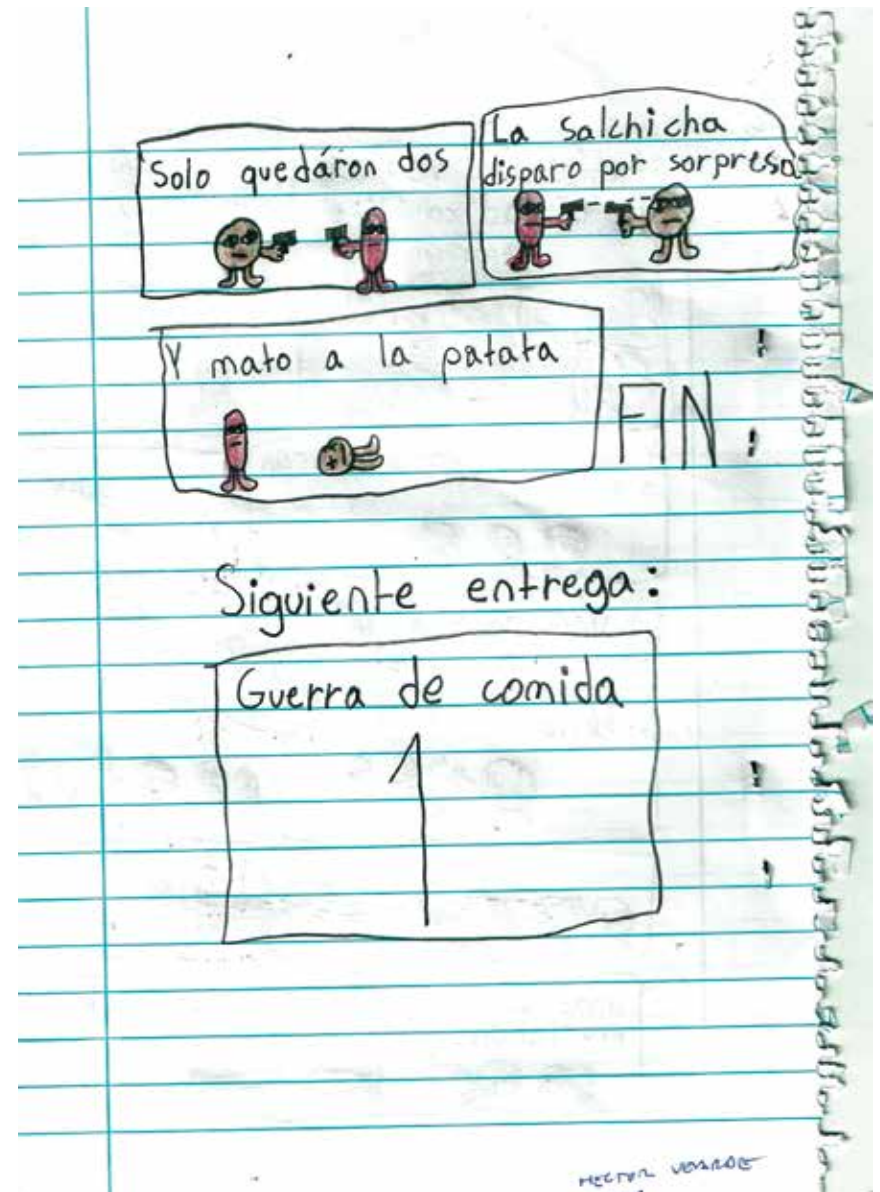 Solo quedáron dos
La salchicha
disparo por sorpresa
Y mato a la patata
FIN
Siguiente entrega:
Guerra de comida
1